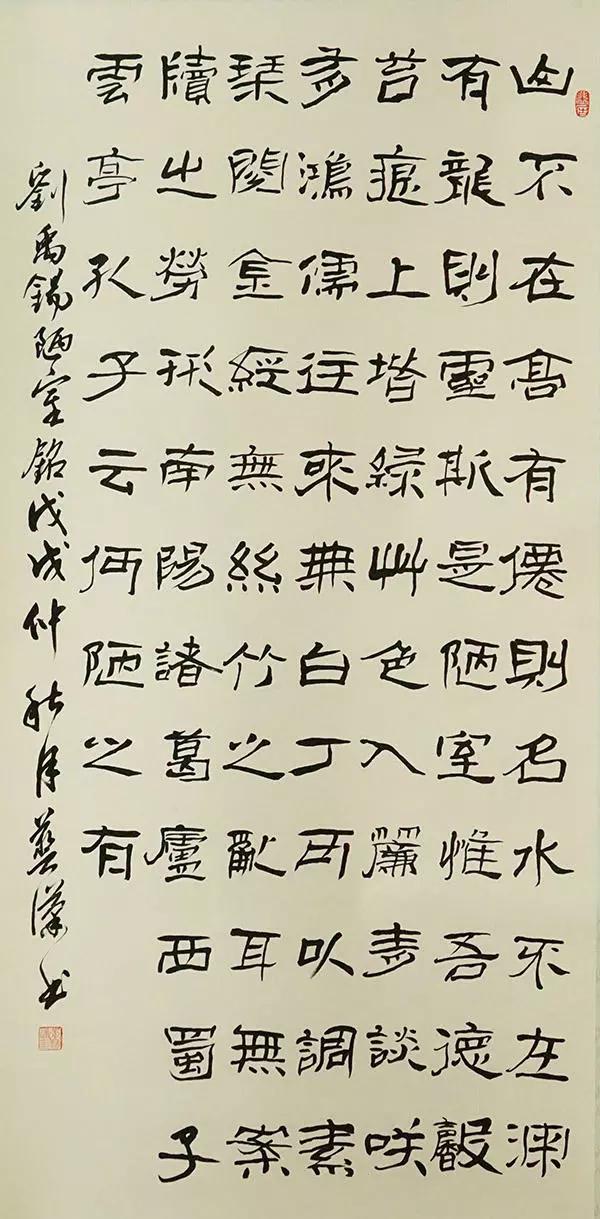 山不在高有僊則名水不在淵
有龍則靈斯是陋室惟吾德馨
苔痕上堦緑艸色入簾青談咲
有鴻儒往來無白丁可以調素
琴閱金經無絲竹之亂耳無案
牘之勞形南陽諸葛廬西蜀子
雲亭孔子云何陋之有
劉禹錫陋室銘戊戌仲秋月藝书